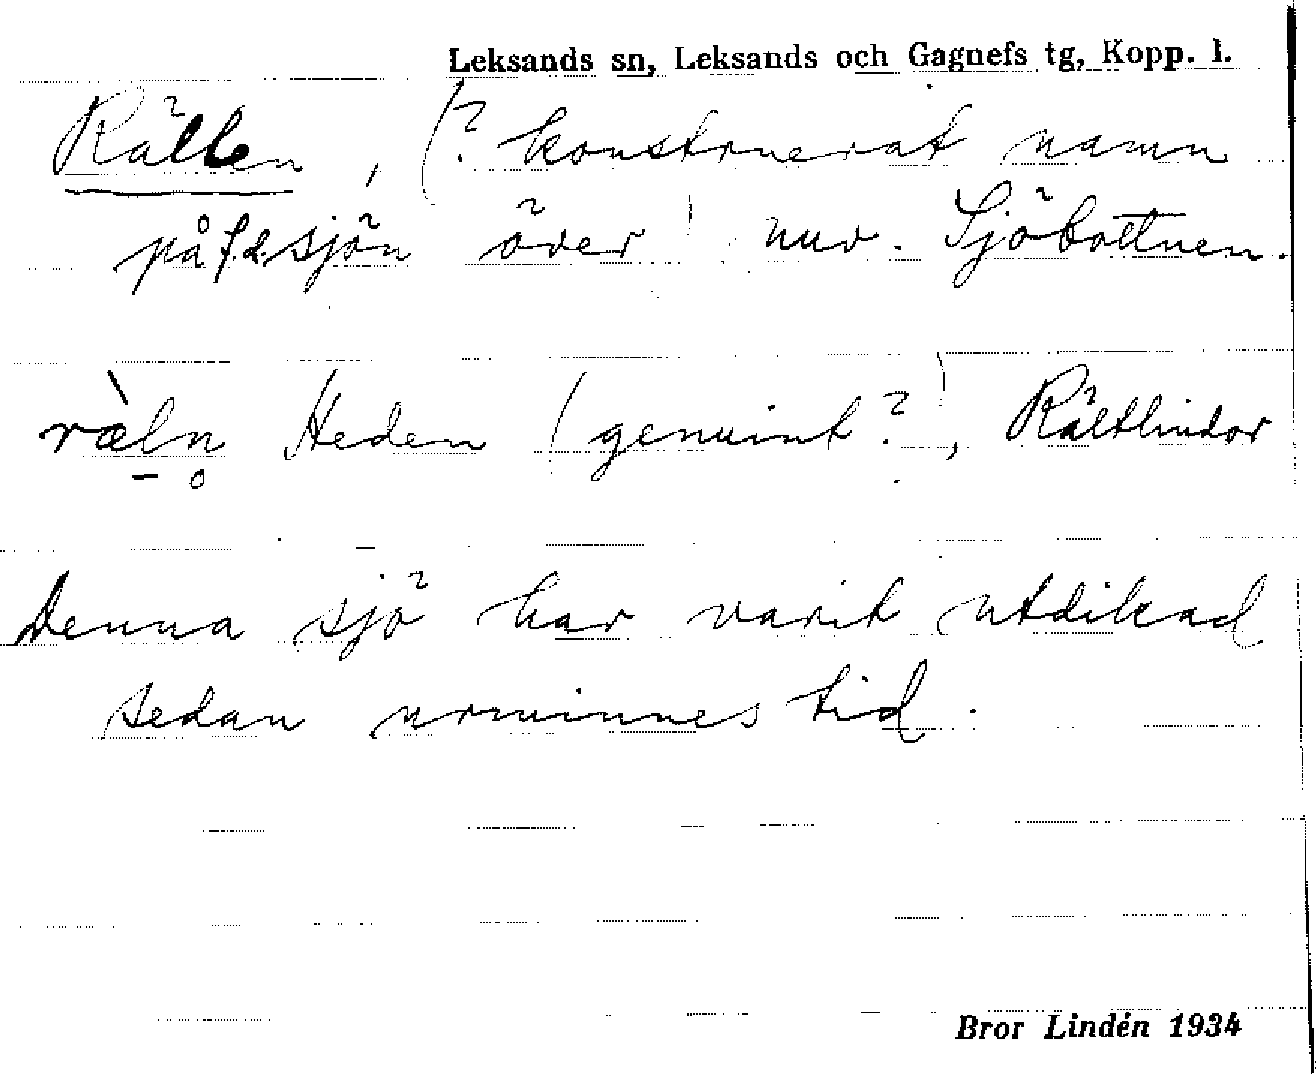 Leksands sn, Leksands och Gagnefs tg, Kopp. l.
Rällen, (? konstruerat namn
på f.d. sjön över nuv. Sjöbottnen.
ræ̀ln̥ Heden (genuint?), Rältlindor
Denna sjö har varit utdikad
sedan urminnes tid.
Bror Lindén 1934